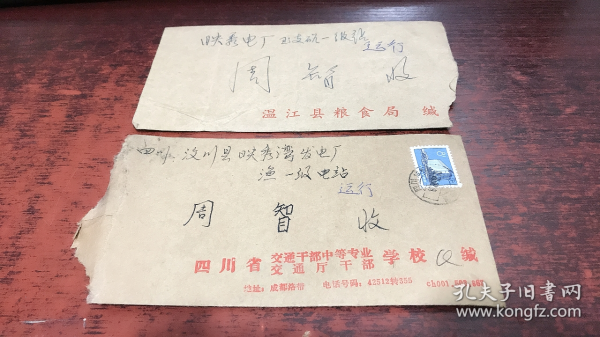 映秀电厂
一级站
运行
周智收
温江县粮食局 缄
四川汶川县映秀湾发电厂
渔一级电站
运行
周智收
四川省交通干部中等专业学校 缄
交通厅干部
地址:成都洛带 电话号码:42512转355
孔夫子旧书网
www.kongfz.com